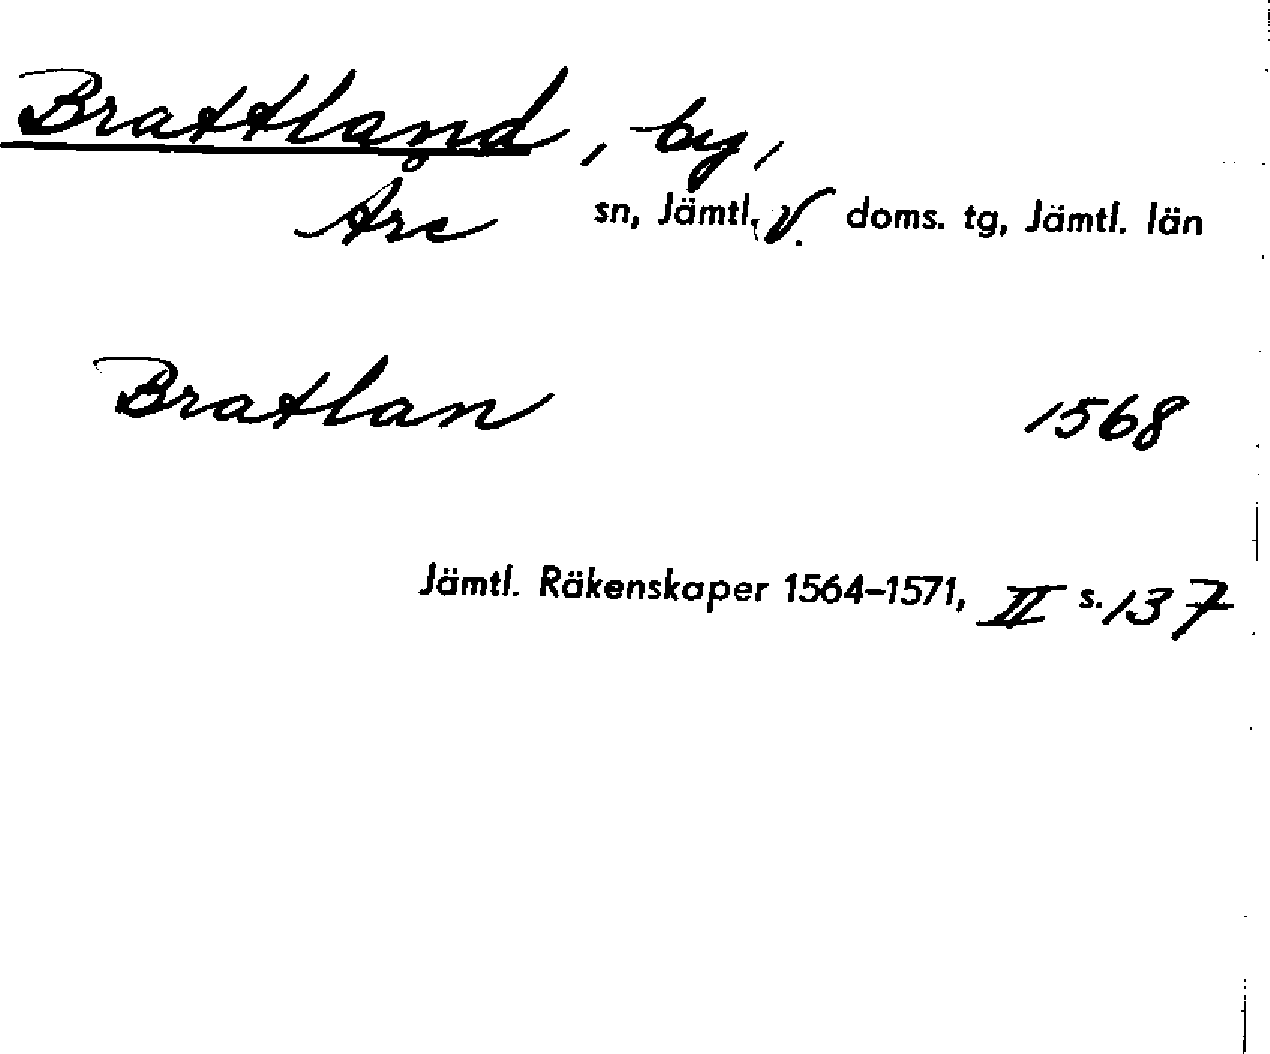 Brattland, by,
Åre sn, Jämtl. V. doms. tg, Jämtl. län
Bratlan 1568
Jämtl. Räkenskaper 1564–1571, II s. 137